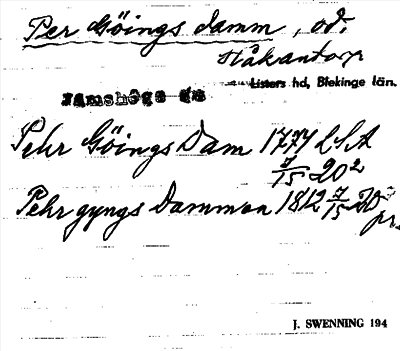 Per Göings damm, od.
Håkantorp
Listers hd, Blekinge län.
Jämshögs sn
Pehr Göings Dam 1777 LSA
7/15 20²
Pehr gyngs Dammen 1812 7/15 20
J. SWENNING 194